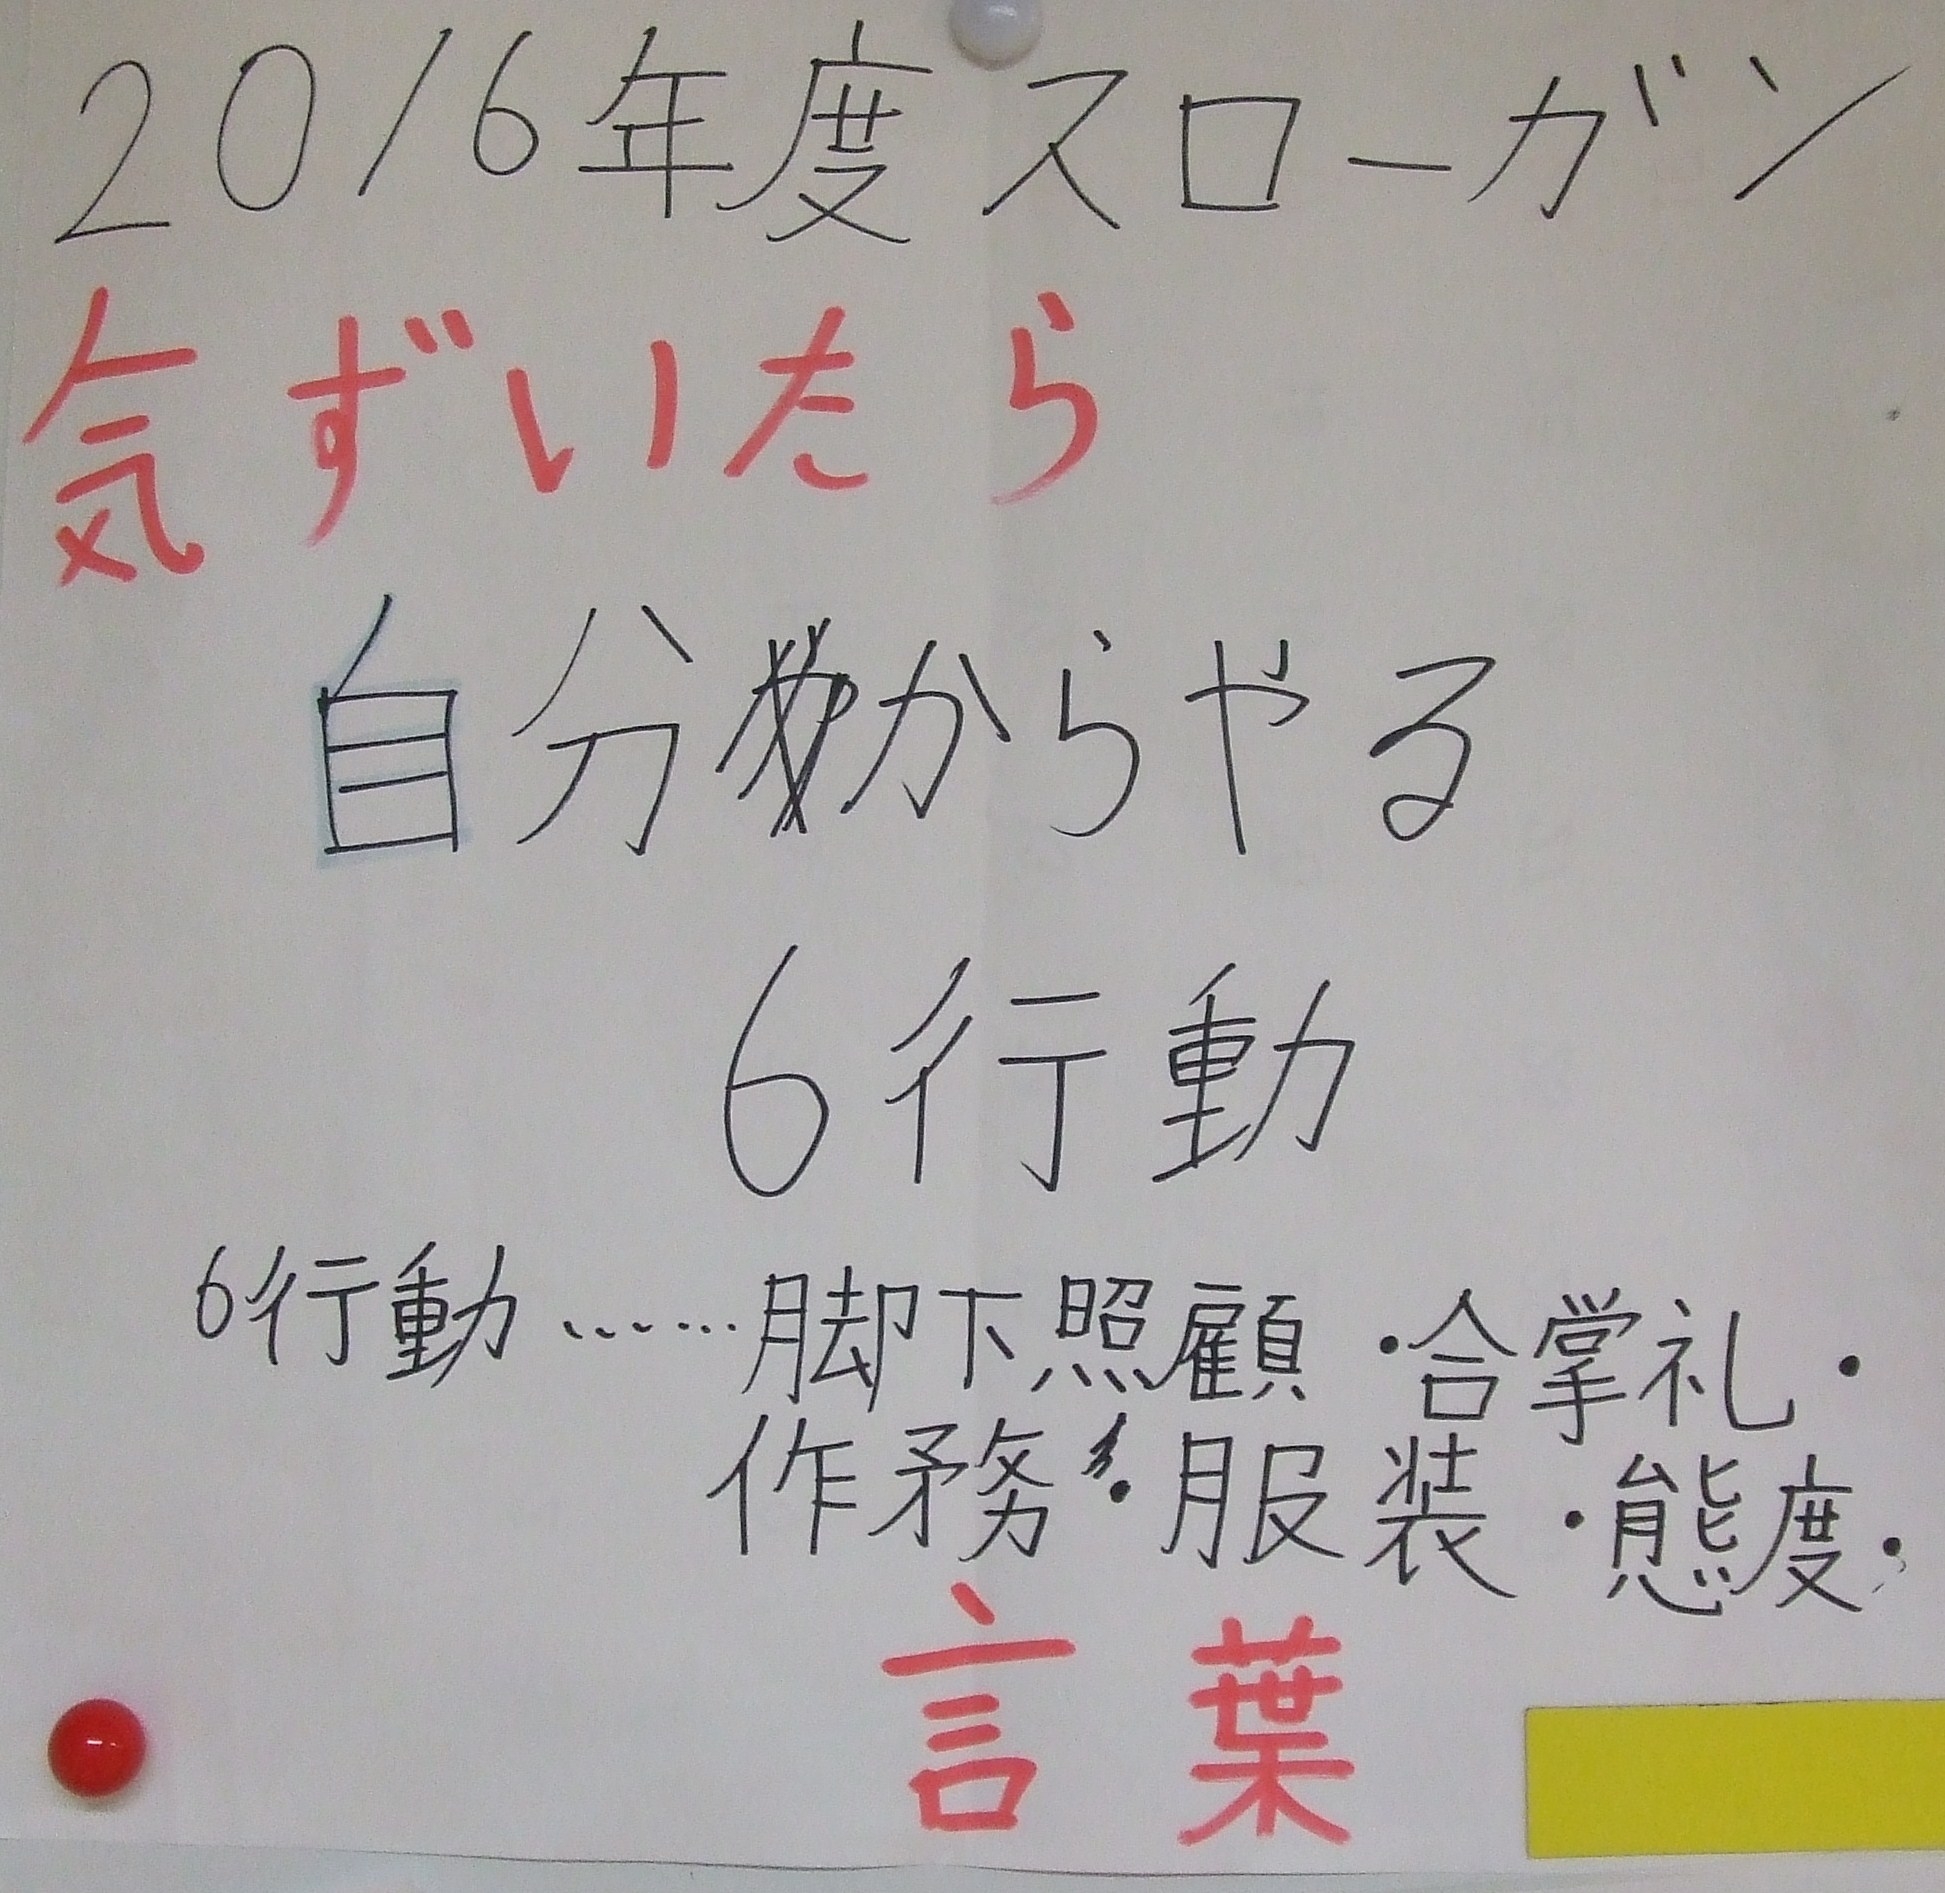 2016年度スローガン
気ずいたら
自分からやる
6行動
6行動……脚下照顧・合掌礼・
作務・服装・態度・
言葉